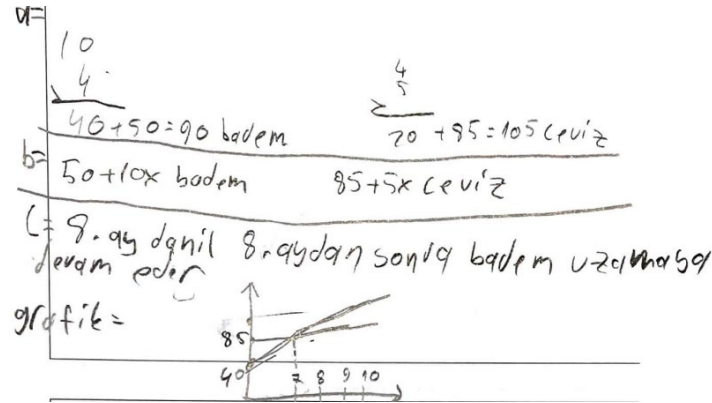 a=
10
4
40+50=90 badem
4
5
20 +85=105 ceviz
b=
50+10x badem 85+5x ceviz
C= 8. ay danil 8. aydan sonra badem uzamaya
devam eder
grafik=
85
40
7 8 9 10